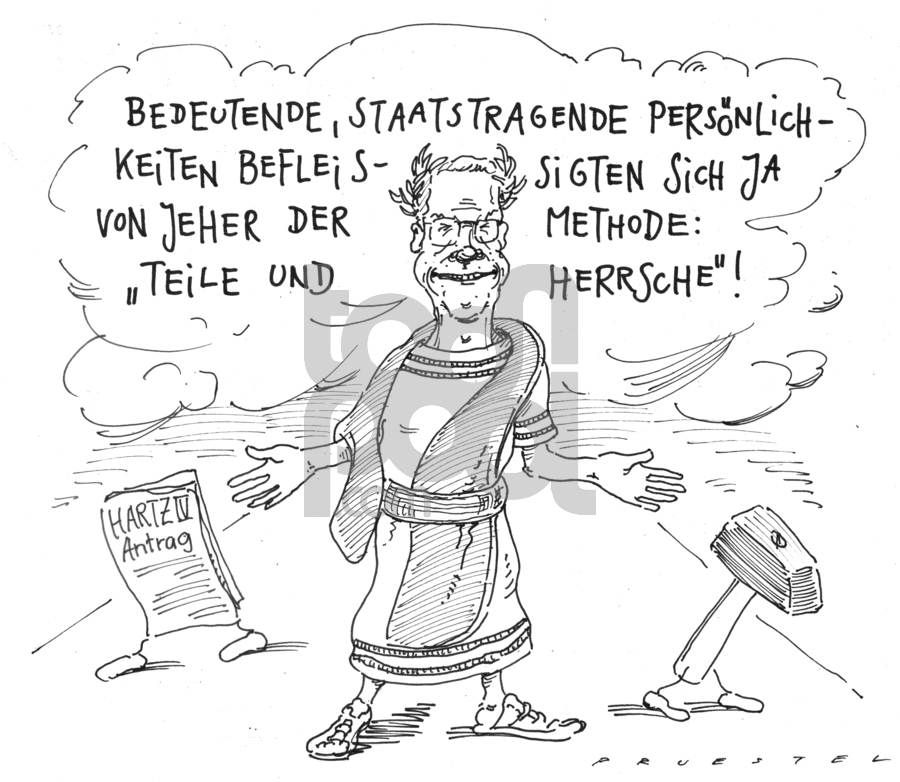 BEDEUTENDE, STAATSTRAGENDE PERSÖNLICH-
KEITEN BEFLEIS- SIGTEN SICH JA
VON JEHER DER METHODE:
„TEILE UND HERRSCHE"!
HARTZ IV
Antrag
toonpool
.com
PRUESTEL